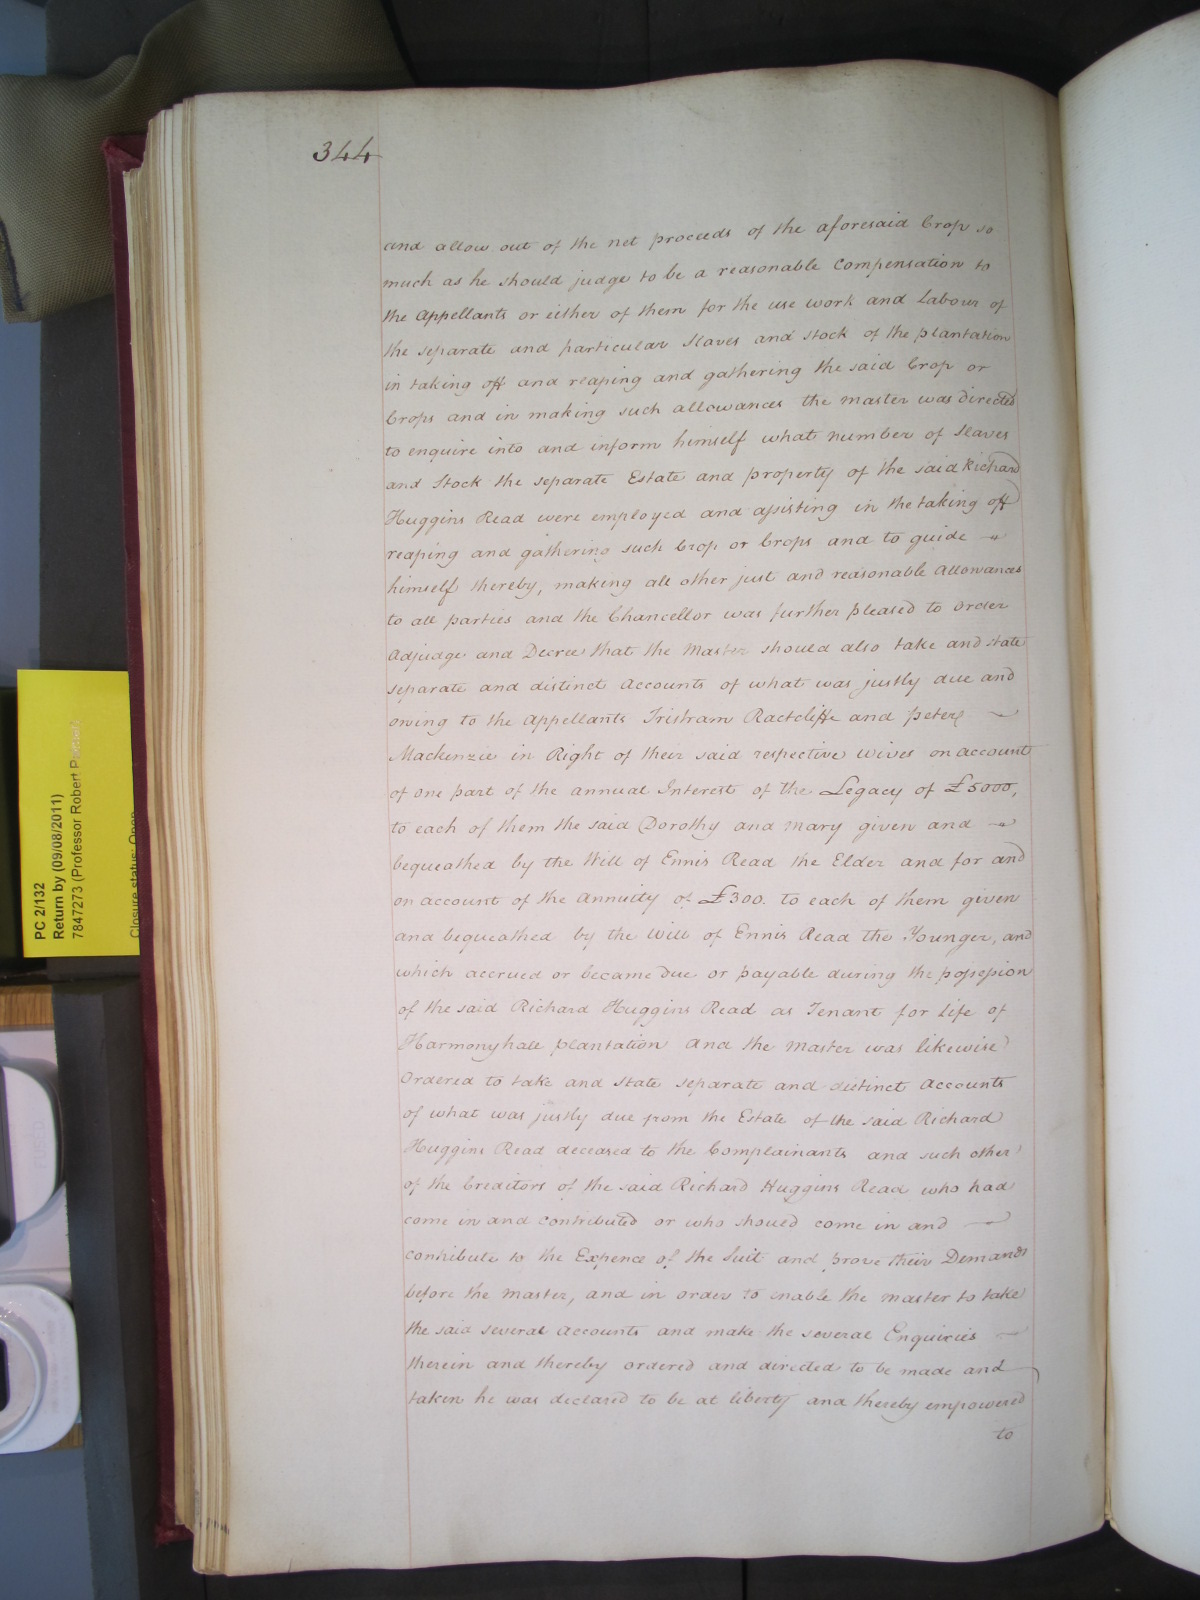 344
and allow out of the net proceeds of the aforesaid Crop so
much as he should judge to be a reasonable Compensation to
the Appellants or either of them for the use work and Labour of
the separate and particular Slaves and stock of the plantation
in taking off and reaping and gathering the said Crop or
Crops and in making such allowances the master was directed
to enquire into and inform himself what number of Slaves
and Stock the separate Estate and property of the said Richard
Huggins Read were employed and assisting in the taking off
reaping and gathering such Crop or Crops and to guide
himself thereby, making all other just and reasonable Allowances
to all parties and the Chancellor was further pleased to order
Adjudge and Decree that the Master should also take and state
separate and distinct Accounts of what was justly due and
owing to the Appellants Tristram Ractcliffe and peter
Mackenzie in Right of their said respective wives on account
of one part of the annual Interest of the Legacy of £5000,
to each of them the said Dorothy and Mary given and
bequeathed by the Will of Ennis Read the Elder and for and
on account of the annuity of £300. to each of them given
and bequeathed by the Will of Ennis Read the Younger, and
which accrued or became due or payable during the possession
of the said Richard Huggins Read as Tenant for Life of
Harmonyhall plantation and the Master was likewise
Ordered to take and state separate and distinct Accounts
of what was justly due from the Estate of the said Richard
Huggins Read deceased to the Complainants and such other
of the Creditors of the said Richard Huggins Read who had
come in and contributed or who should come in and
contribute to the Expence of the Suit and prove their Demands
before the Master, and in order to enable the master to take
the said several Accounts and make the several Enquiries
therein and thereby ordered and directed to be made and
taken he was declared to be at liberty and thereby empowered
to
PC 2/132
Return by (09/08/2011)
7847273 (Professor Robert
Closure status: Open